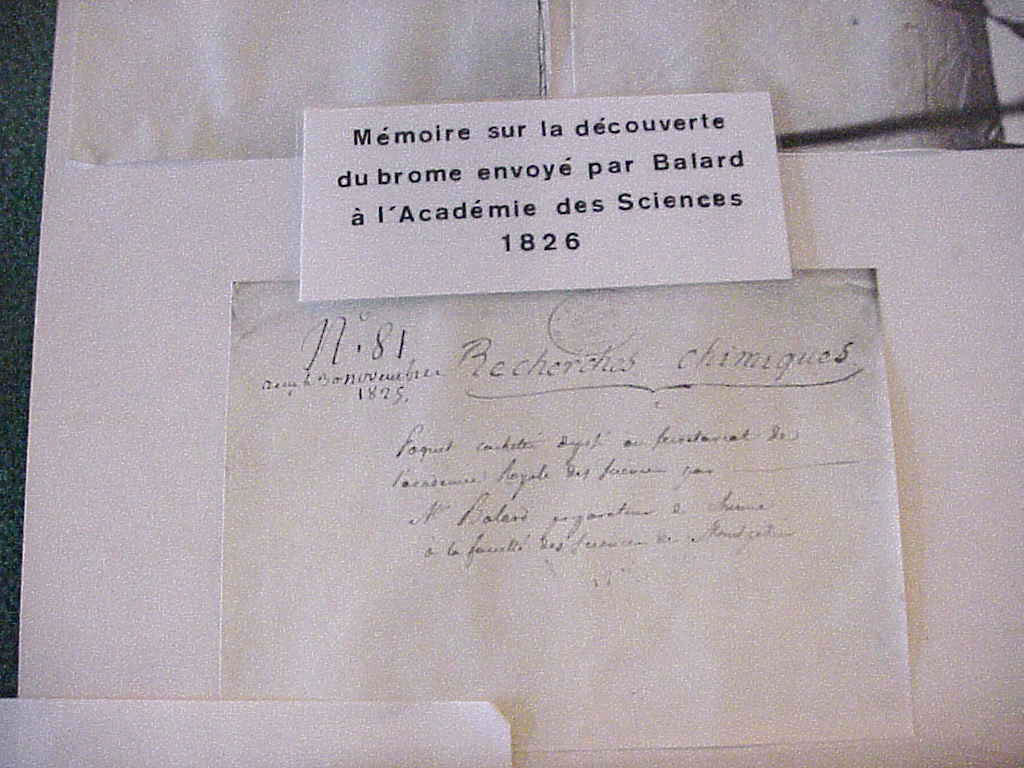 Mémoire sur la découverte
du brome envoyé par Balard
à l'Académie des Sciences
1826
N.° 81
Recherches chimiques
novembre
1825.
Paquet cacheté au Secretariat de
l'academie Royale des Sciences par
Mr Balard preparateur de chimie
à la faculté des Sciences de Montpellier